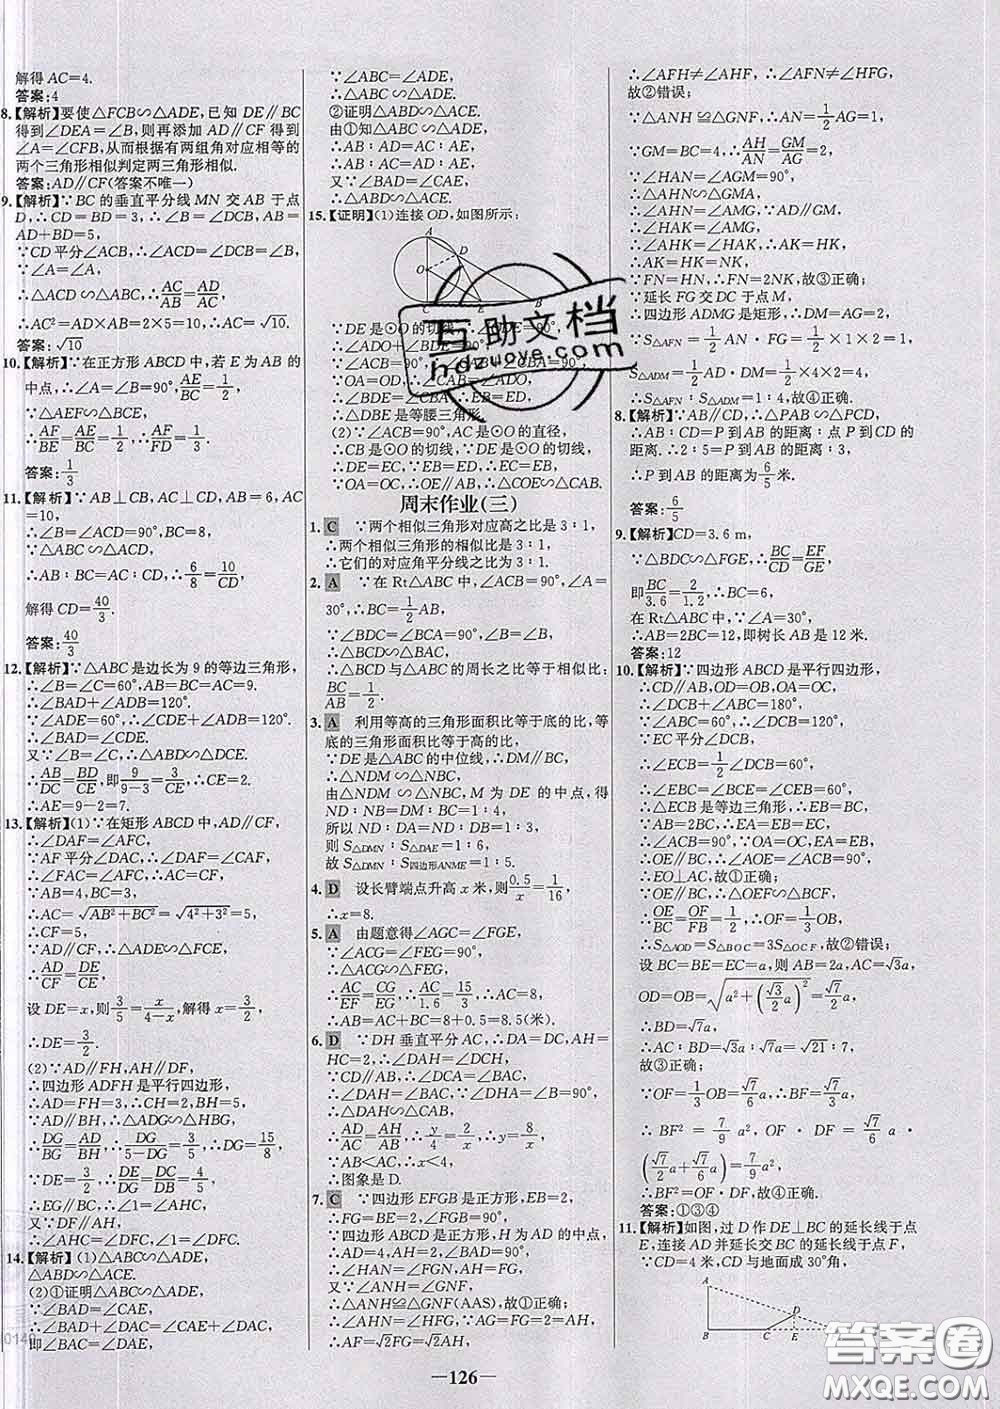 解得 AC=4.
答案:4
8.【解析】要使△FCB∽△ADE,已知 DE∥BC
得到∠DEA=∠B,则再添加 AD∥CF 得到
∠A=∠FCB,从而根据有两组角对应相等的
两个三角形相似判定两三角形相似.
答案:AD∥CF(答案不唯一)
9.【解析】∵BC 的垂直平分线 MN 交 AB 于点
D,∴CD=BD=3,∴∠B=∠DCB,AB=
AD+BD=5,
∵CD 平分∠ACB,∴∠ACD=∠DCB=∠B,
∵∠A=∠A,
∴△ACD∽△ABC,∴AC/AB=AD/AC,
∴AC²=AD×AB=2×5=10,∴AC=√10.
答案:√10
10.【解析】∵在正方形 ABCD 中,若 E 为 AB 的
中点,∴∠A=∠B=90°,AE/BC=1/2,
∵△AEF∽△BCE,
∴AF/BE=AE/BC=1/2,∴AF/FD=1/3.
答案:1/3
11.【解析】∵AB⊥CB,AC⊥CD,AB=6,AC
=10,
∴∠B=∠ACD=90°,BC=8,
∵△ABC∽△ACD,
∴AB∶BC=AC∶CD,∴6/8=10/CD,
解得 CD=40/3.
答案:40/3
12.【解析】∵△ABC 是边长为 9 的等边三角形,
∴∠B=∠C=60°,AB=BC=AC=9.
∴∠BAD+∠ADB=120°.
∵∠ADE=60°,∴∠CDE+∠ADB=120°.
∴∠BAD=∠CDE.
又∵∠B=∠C,∴△ABD∽△DCE.
∴AB/DC=BD/CE,即9/(9-3)=3/CE,∴CE=2.
∴AE=9-2=7.
13.【解析】(1)∵在矩形 ABCD 中,AD∥CF,
∴∠DAF=∠AFC,
∵AF 平分∠DAC,∴∠DAF=∠CAF,
∴∠FAC=∠AFC,∴AC=CF,
∵AB=4,BC=3,
∴AC=√(AB²+BC²)=√(4²+3²)=5,
∴CF=5,
∵AD∥CF,∴△ADE∽△FCE,
∴AD/CF=DE/CE,
设 DE=x,则3/5=x/(4-x),解得 x=3/2,
∴DE=3/2.
(2)∵AD∥FH,AH∥DF,
∴四边形 ADFH 是平行四边形,
∴AD=FH=3,∴CH=2,BH=5,
∵AD∥BH,∴△ADG∽△HBG,
∴DG/BG=AD/BH,∴DG/(5-DG)=3/5,∴DG=15/8,
∵DE=3/2,∴DE/DC=DG/DB=4/5,
∴EG∥BC,∴∠1=∠AHC,
又∵DF∥AH,
∴∠AHC=∠DFC,∴∠1=∠DFC.
14.【解析】(1)△ABC∽△ADE,
△ABD∽△ACE.
(2)①证明△ABC∽△ADE,
∵∠BAD=∠CAE,
∴∠BAD+∠DAC=∠CAE+∠DAC,
即∠BAC=∠DAE,
∵∠ABC=∠ADE,
∴△ABC∽△ADE.
②证明△ABD∽△ACE.
由①知△ABC∽△ADE,
∴AB∶AD=AC∶AE,
∴AB∶AC=AD∶AE,
又∵∠BAD=∠CAE,
∴△ABD∽△ACE.
15.【证明】(1)连接 OD,如图所示:
A
D
O
C E B
∵DE 是⊙O 的切线,
∴∠ADO+∠BDE=90°,
∵∠ACB=90°,∴∠CAB+∠CBA=90°,
∵OA=OD,∴∠CAB=∠ADO,
∴∠BDE=∠CBA,∴EB=ED,
∴△DBE 是等腰三角形.
(2)∵∠ACB=90°,AC 是⊙O 的直径,
∴CB 是⊙O 的切线,∵DE 是⊙O 的切线,
∴DE=EC,∵EB=ED,∴EC=EB,
∵OA=OC,∴OE∥AB.
周末作业(三)
1. C ∵两个相似三角形对应高之比是 3∶1,
∴两个相似三角形的相似比是 3∶1,
∴它们的对应角平分线之比为 3∶1.
2. A ∵在 Rt△ABC 中,∠ACB=90°,∠A=
30°,∴BC=1/2AB,
∵∠BDC=∠BCA=90°,∠B=∠B,
∴△BCD∽△BAC,
∴△BCD 与△ABC 的周长之比等于相似比:
BC/AB=1/2.
3. A 利用等高的三角形面积比等于底的比,等
底的三角形面积比等于高的比,
∵DE 是△ABC 的中位线,∴DM∥BC,
∴△NDM∽△NBC,
由△NDM∽△NBC,M 为 DE 的中点,得
ND∶NB=DM∶BC=1∶4,
所以 ND∶DA=ND∶DB=1∶3,
则 S△DMN∶S△DMA=1∶3,
故 S△DMN∶S四边形ANME=1∶5.
4. D 设长臂端点升高 x 米,则0.5/x=1/16,
∴x=8.
5. A 由题意得∠AGC=∠FGE,
∵∠ACG=∠FEG=90°,
∴△ACG∽△FEG,
∴AC/EF=CG/EG,∴AC/1.6=15/3,∴AC=8,
∴AB=AC+BC=8+0.5=8.5(米).
6. D ∵DH 垂直平分 AC,∴DA=DC,AH=
HC=2,∴∠DAH=∠DCH,
∵CD∥AB,∴∠DCA=∠BAC,
∴∠DAH=∠BAC,∵∠DHA=∠B=90°,
∴△DAH∽△CAB,
∴AD/AC=AH/AB,∴y/4=2/x,∴y=8/x,
∵AB<AC,∴x<4,
∴图象是 D.
7. C ∵四边形 EFGB 是正方形,EB=2,
∴FG=BE=2,∠FGB=90°,
∵四边形 ABCD 是正方形,H 为 AD 的中点,
∴AD=4,AH=2,∠BAD=90°,
∴∠HAN=∠FGN,AH=FG,
∵∠ANH=∠GNF,
∴△ANH≌△GNF(AAS),故①正确;
∴∠AHN=∠HFG,∵AG=FG=2=AH,
∴AF=√2FG=√2AH,
∴∠AFH≠∠AHF,∴∠AFN≠∠HFG,
故②错误;
∵△ANH≌△GNF,∴AN=1/2AG=1,
∵GM=BC=4,∴AH/AN=GM/AG=2,
∵∠HAN=∠AGM=90°,
∴△AHN∽△GMA,
∴∠AHN=∠AMG,∵AD∥GM,
∴∠HAK=∠AMG,
∴∠AHK=∠HAK,∴AK=HK,
∴AK=HK=NK,
∵FN=HN,∴FN=2NK,故③正确;
∵延长 FG 交 DC 于点 M,
∴四边形 ADMG 是矩形,∴DM=AG=2,
∵S△AFN=1/2AN·FG=1/2×2×1=1,
S△ADM=1/2AD·DM=1/2×4×2=4,
∴S△AFN∶S△ADM=1∶4,故④正确.
8.【解析】∵AB∥CD,∴△PAB∽△PCD,
∴AB∶CD=P 到 AB 的距离∶点 P 到 CD
的距离.2∶5=P 到 AB 的距离∶3,
∴P 到 AB 的距离为6/5米.
答案:6/5
9.【解析】CD=3.6 m,
∵△BDC∽△FGE,∴BC/CD=EF/GE,
即BC/3.6=2/1.2,∴BC=6.
在 Rt△ABC 中,∵∠A=30°,
∴AB=2BC=12,即树长 AB 是 12 米.
答案:12
10.【解析】∵四边形 ABCD 是平行四边形,
∴CD∥AB,OD=OB,OA=OC,
∴∠DCB+∠ABC=180°,
∵∠ABC=60°,∴∠DCB=120°,
∵EC 平分∠DCB,
∴∠ECB=1/2∠DCB=60°,
∴∠EBC=∠BCE=∠CEB=60°,
∴△ECB 是等边三角形,∴EB=BC,
∵AB=2BC,∴EA=EB=EC,
∴∠ACB=90°,∵OA=OC,EA=EB,
∴OE∥BC,∴∠AOE=∠ACB=90°,
∴EO⊥AC,故①正确;
∵OE∥BC,∴△OEF∽△BCF,
∴OE/BC=OF/FB=1/2,∴OF=1/3OB,
∴S△AOD=S△BOC=3S△OCF,故②错误;
设 BC=BE=EC=a,则 AB=2a,AC=√3a,
OD=OB=√(a²+(√3/2a)²)=√7/2a,
∴BD=√7a,
∴AC∶BD=√3a∶√7a=√21∶7,
故③正确;
∵OF=1/3OB=√7/6a,∴BF=√7/3a,
∴BF²=7/9a²,OF·DF=√7/6a·
(√7/2a+√7/6a)=7/9a²,
∴BF²=OF·DF,故④正确.
答案:①③④
11.【解析】如图,过 D 作 DE⊥BC 的延长线于点
E,连接 AD 并延长交 BC 的延长线于点 F,
∵CD=4 米,CD 与地面成 30°角,
A
D
B C E
—126—
互助文档
hdzuoye.com
答案圈
MXQE.COM